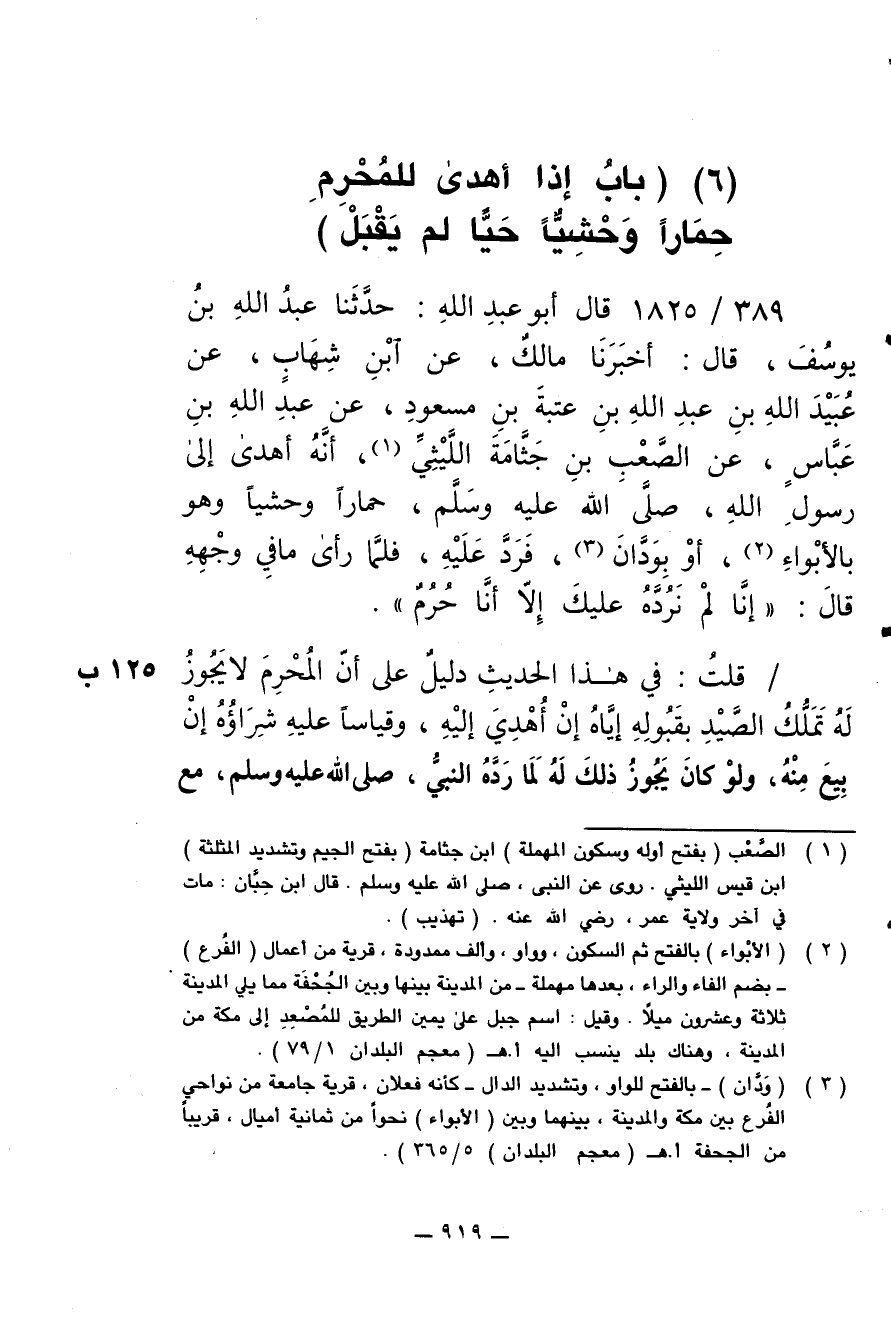 (٦) ( بابُ إذا أهدىٰ للمُحْرِمِ
حِمَاراً وَحْشِيًّاً حَيًّا لم يَقْبَلْ )
٣٨٩ / ١٨٢٥ قال أبو عبدِ اللهِ : حدَّثَنا عبدُ اللهِ بنُ
يوسُفَ ، قال : أخبَرَنَا مالكٌ ، عن آبْنِ شِهَابٍ ، عن
عُبَيْدَ اللهِ بنِ عبدِ اللهِ بنِ عتبةَ بنِ مسعودٍ ، عن عبدِ اللهِ بنِ
عَبَّاسٍ ، عن الصَّعْبِ بنِ جَثَّامَةَ اللَّيْثِيِّ (١)، أنَّهُ أهدىٰ إلىٰ
رسولِ اللهِ ، صلَّى الله عليه وسَلَّم ، حماراً وحشياً وهو
بالأبْواءِ (٢) ، أوْ بِوَدَّانَ (٣) ، فَرَدَّ عَلَيْهِ ، فلمَّا رأىٰ مافي وجْهِهِ
قالَ : « إنَّا لمْ نَرُدَّهُ عليكَ إلاّ أنَّا حُرُمٌ » .
/ قلتُ : في هـٰـذا الحديثِ دليلٌ على أنّ المُحْرِمَ لايَجُوزُ ١٢٥ ب
لَهُ تَمَلُّكُ الصَّيْدِ بقَبُولِهِ إيَّاهُ إنْ أُهْدِيَ إليْهِ ، وقياساً عليهِ شِرَاؤُهُ إنْ
بِيعَ مِنْهُ، ولوْ كانَ يَجُوزُ ذلكَ لَهُ لَمَا رَدَّهُ النبيُّ ، صلى الله عليه وسلم، مع
(١) الصَّعْب ( بفتح أوله وسكون المهملة ) ابن جثامة ( بفتح الجيم وتشديد المثلثة )
ابن قيس الليثي . روى عن النبى ، صلى الله عليه وسلم . قال ابن حِبَّان : مات
في آخر ولاية عمر ، رضي الله عنه . ( تهذيب ) .
(٢) ( الأبْواء ) بالفتح ثم السكون ، وواو ، وألف ممدودة ، قرية من أعمال ( الفُرع )
ـ بضم الفاء والراء ، بعدها مهملة ـ من المدينة بينها وبين الجُحْفَة مما يلي المدينة
ثلاثة وعشرون ميلاً . وقيل : اسم جبل علىٰ يمين الطريق للمُصْعِدِ إلى مكة من
المدينة ، وهناك بلد ينسب اليه أ.هـ ( معجم البلدان ٧٩/١ ) .
(٣) ( وَدَّان ) ـ بالفتح للواو ، وتشديد الدال ـ كأنه فعلان ، قرية جامعة من نواحي
الفُرع بين مكة والمدينة ، بينهما وبين ( الأبواء ) نحواً من ثمانية أميال ، قريباً
من الجحفة أ.هـ ( معجم البلدان ) ٣٦٥/٥ ) .
ـ ٩١٩ ـ